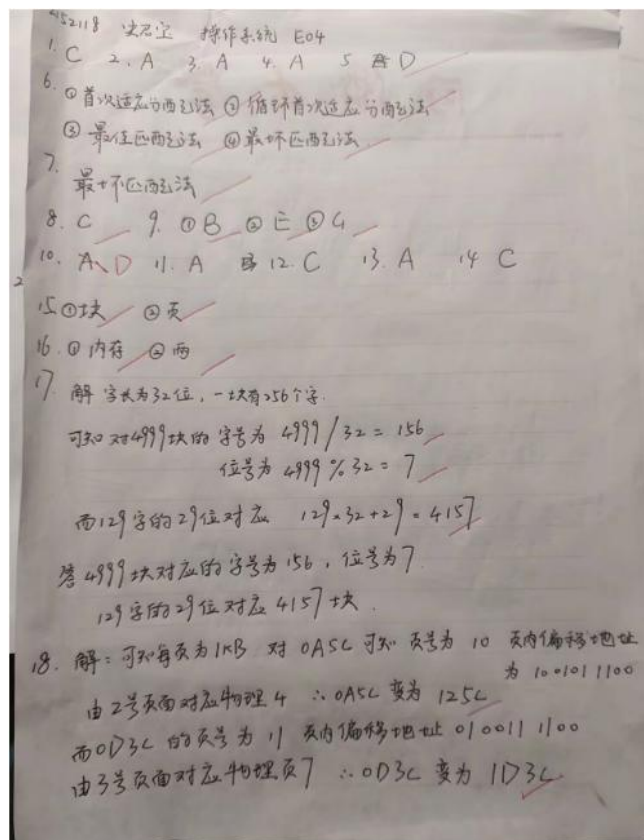 操作系统 E04
1. C 2. A 3. A 4. A 5 D
6. ①首次适应分配法 ②循环首次适应分配法
③最佳匹配法 ④最坏匹配法
7.
最坏匹配法
8. C 9. ①B ②E ③G
10. A、D 11. A 12. C 13. A 14 C
15 ①块 ②页
16. ①内存 ②两
17. 解 字长为32位,一块有256个字.
可知对4999块的字号为 4999/32=156
位号为 4999%32=7
而129字的29位对应 129×32+29=4157
答 4999块对应的字号为156,位号为7.
129字的29位对应4157块.
18. 解:可知每页为1KB 对0A5C可知 页号为 10 页内偏移地址
为 1001011100
由2号页面对应物理4 ∴0A5C变为 125C
而0D3C的页号为 11 页内偏移地址 0100111100
由3号页面对应物理页7 ∴0D3C 变为 1D3C